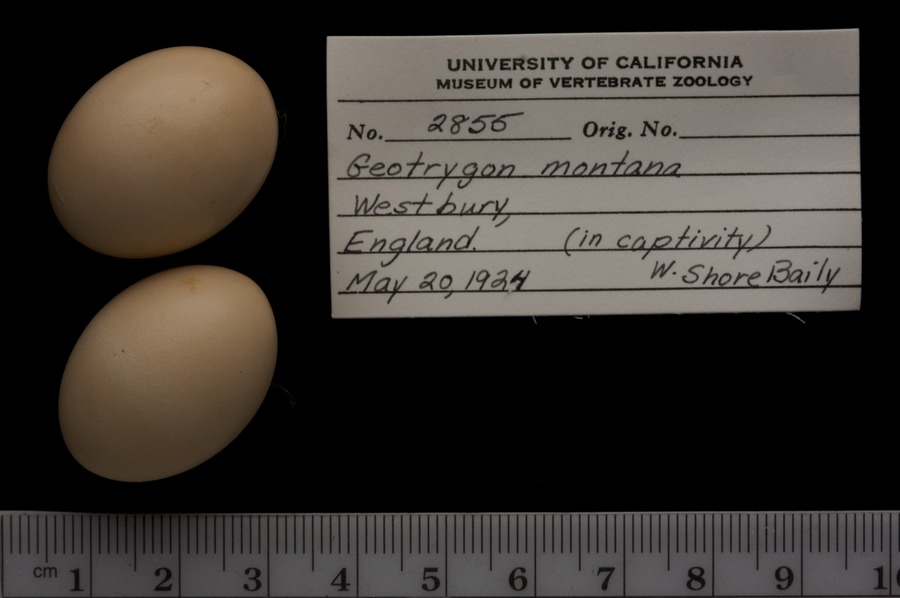 UNIVERSITY OF CALIFORNIA
MUSEUM OF VERTEBRATE ZOOLOGY
No. 2855 Orig. No.
Geotrygon montana
Westbury,
England. (in captivity)
May 20, 1924 W. Shore Baily
cm 1 2 3 4 5 6 7 8 9 1